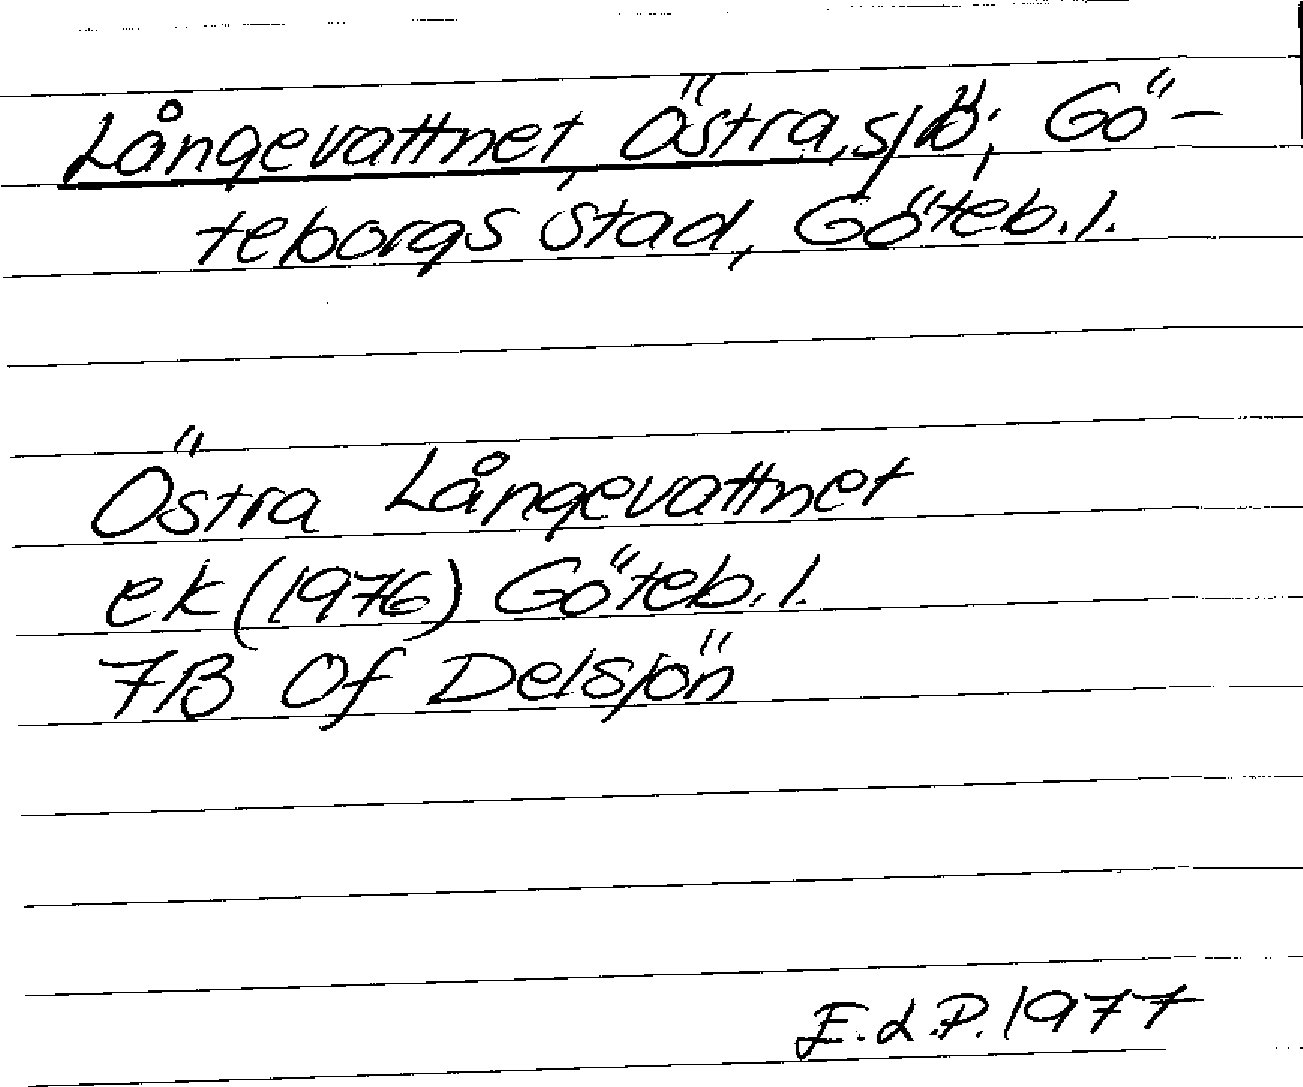 Långevattnet, Östra, sjö; Gö-
teborgs stad, Göteb. l.
Östra Långevattnet
ek (1976) Göteb. l.
7B 0f Delsjön
E.d.P. 1977